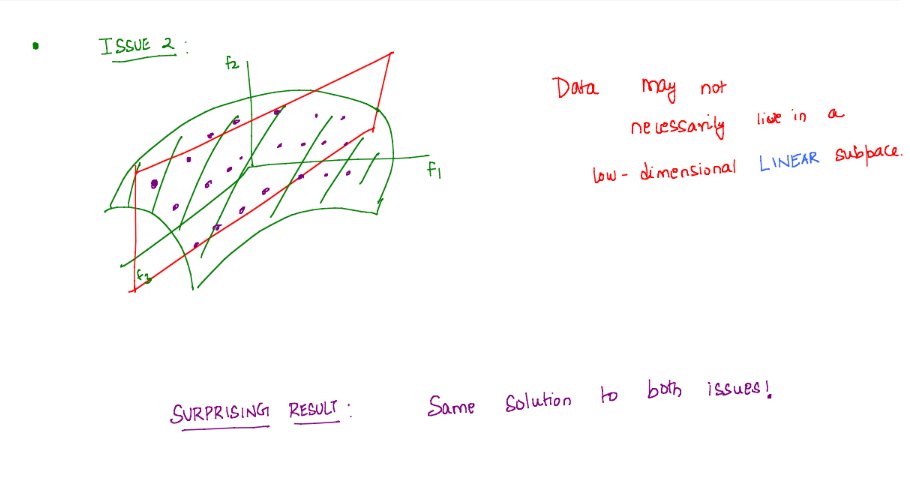 ISSUE 2 :
f2
f1
f3
Data may not
necessarily live in a
low-dimensional LINEAR subpace.
SURPRISING RESULT : Same solution to both issues!